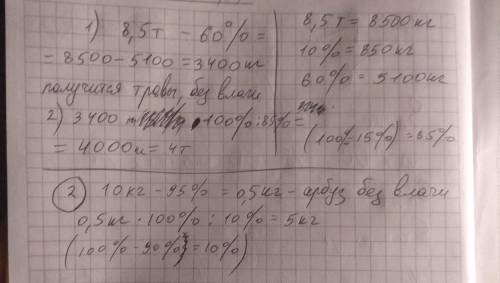 1) 8,5т – 60% =
= 8500 – 5100 = 3400 кг
получится травы, без влаги
2) 3400 · 100% : 85% =
= 4000 кг = 4т
8,5т = 8500 кг
10% = 850 кг
60% = 5100 кг
(100% - 15%) = 85%
2) 10 кг – 95% = 0,5 кг – арбуз без влаги
0,5 кг · 100% : 10% = 5 кг
(100% – 90% = 10%)